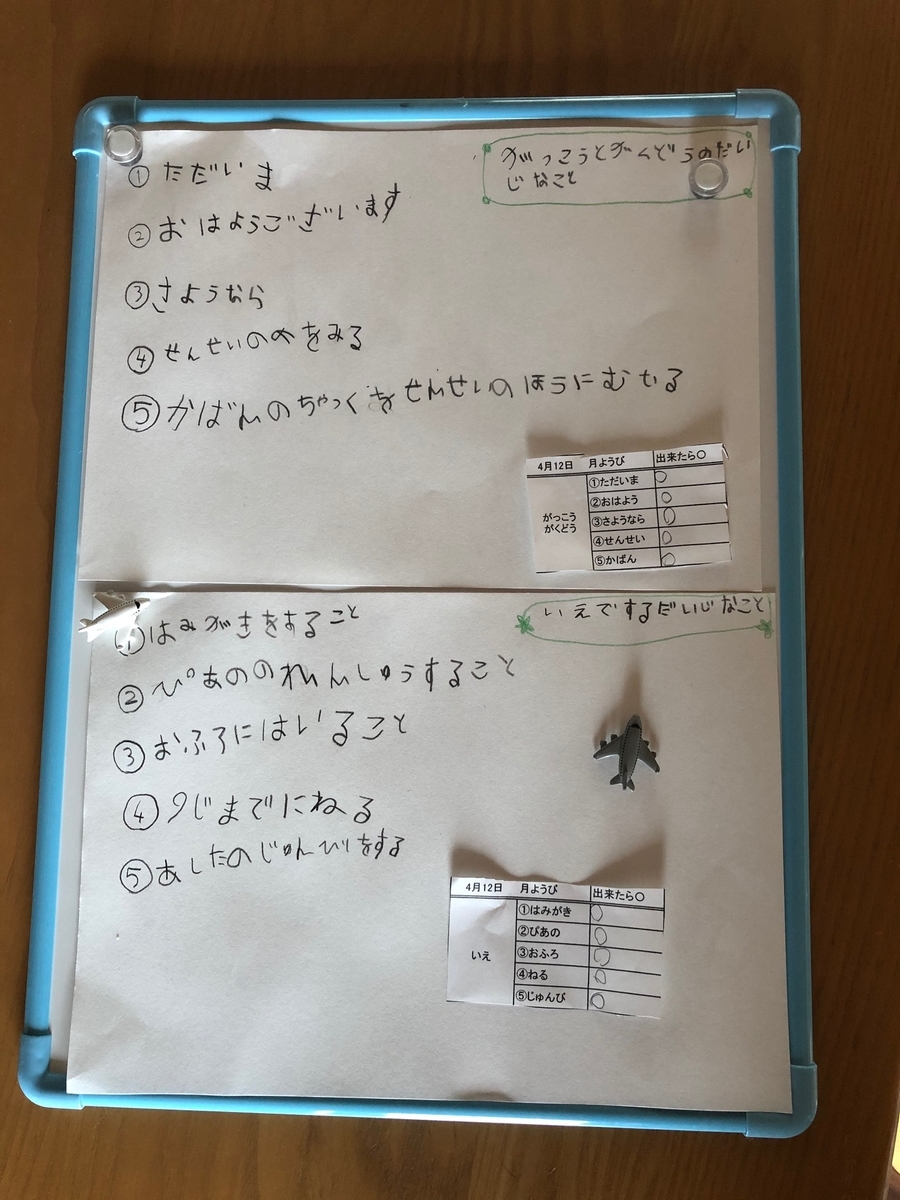 がっこうとがくどうのだい
じなこと
①ただいま
②おはようございます
③さようなら
④せんせいのめをみる
⑤かばんのちゃっくをせんせいのほうにむける
4月12日 月ようび 出来たら〇
がっこう
がくどう
①ただいま 〇
②おはよう 〇
③さようなら 〇
④せんせい 〇
⑤かばん 〇
いえでするだいじなこと
①はみがきをすること
②ぴあののれんしゅうすること
③おふろにはいること
④9じまでにねる
⑤あしたのじゅんびをする
4月12日 月ようび 出来たら〇
いえ
①はみがき 〇
②ぴあの 〇
③おふろ 〇
④ねる 〇
⑤じゅんび 〇